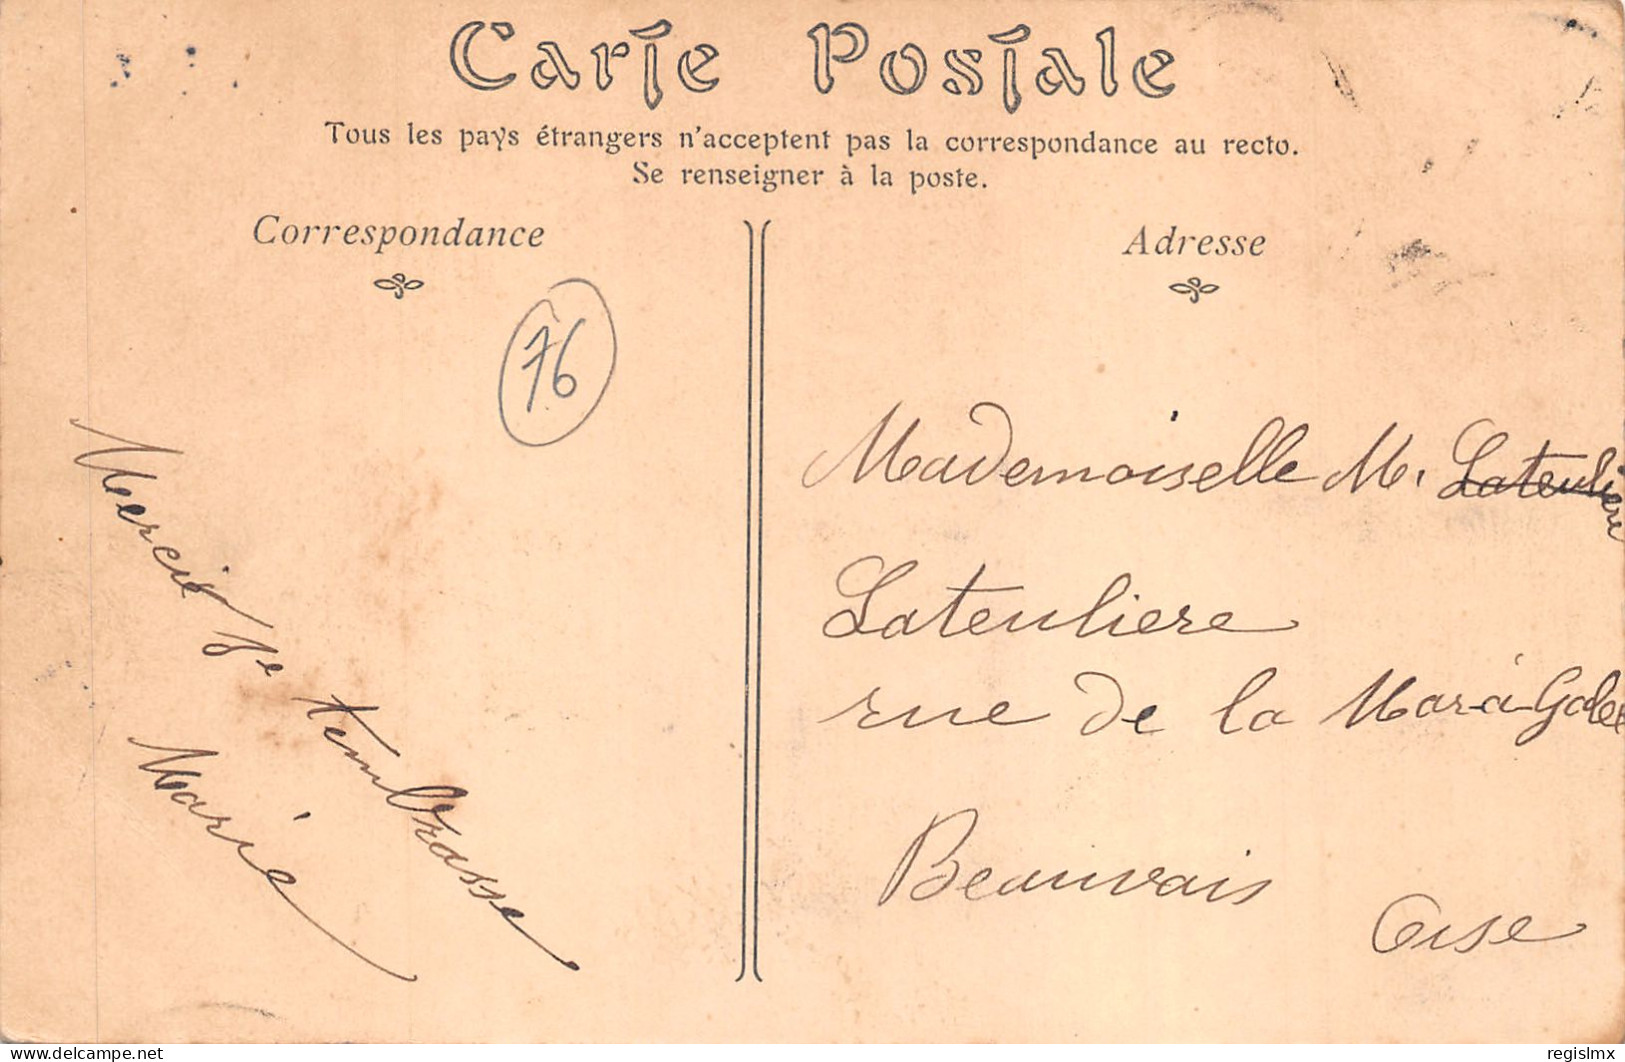 Carte Postale
Tous les pays étrangers n'acceptent pas la correspondance au recto.
Se renseigner à la poste.
Correspondance
Adresse
76
Merci je t'embrasse
Marie
Mademoiselle M. Lateuliere
Lateuliere
rue de la Mar-à-Galet
Beauvais
Oise
delcampe.net
regislmx